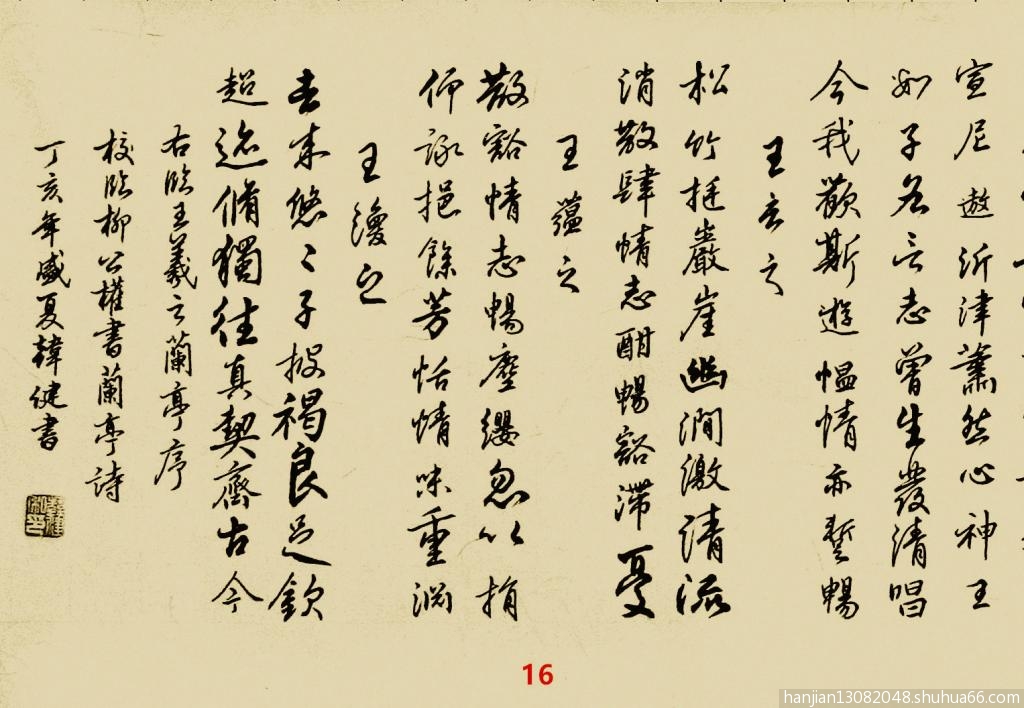 宣尼遨沂津蕭然心神王
如子各言志曾生發清唱
今我歡斯遊慍情亦暫暢
王玄之
松竹挺巖崖幽澗激清流
消散肆情志酣暢豁滯憂
王蘊之
散豁情志暢塵纓忽以捐
仰詠挹餘芳怡情味重淵
王渙之
去來悠〻子披褐良足欽
超迹脩獨往真契齊古今
右臨王羲之蘭亭序
校臨柳公權書蘭亭詩
丁亥年盛夏韓健書
16
hanjian13082048.shuhua66.com